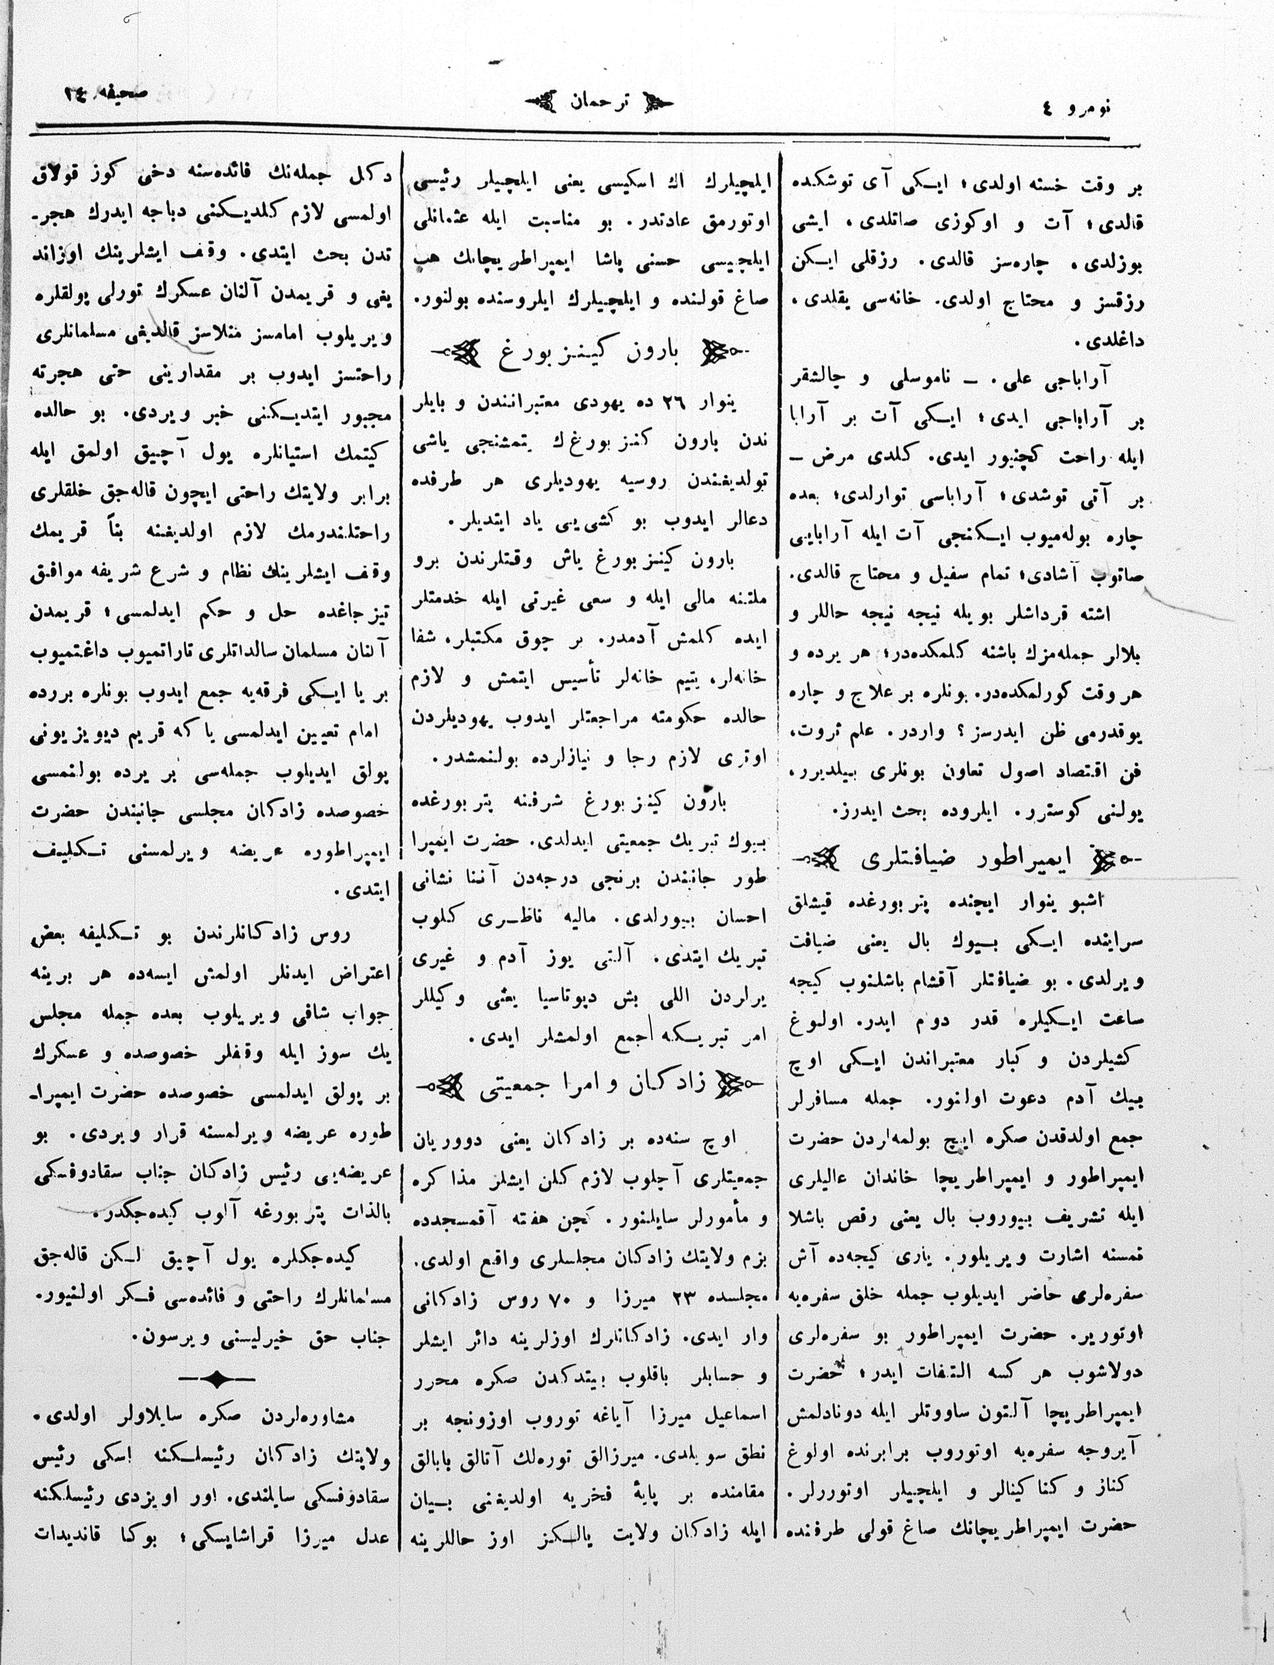 نومرو ٤
ترجمان
صحيفه ٢٤
بر وقت خسته اولدى؛ ايكى آى توشكده
قالدى؛ آت و اوكوزى صاتلدى، ايشى
بوزلدى، چاره‌سز قالدى. رزقلى ايكن
رزقسز و محتاج اولدى. خانه‌سى يقلدى،
داغلدى.
آراباجى على. ــ ناموسلى و چالشقر
بر آراباجى ايدى؛ ايكى آت بر آرابا
ايله راحت كچنيور ايدى. كلدى مرض ــ
بر آتى توشدى؛ آراباسى توارلدى؛ بعده
چاره بوله‌ميوب ايكنجى آت ايله آرابايى
صاتوب آشادى؛ تمام سفيل و محتاج قالدى.
اشته قرداشلر بويله نيجه نيجه حاللر و
بلالر جمله‌مزك باشنه كلمكده‌در؛ هر يرده و
هر وقت كورلمكده‌در. بونلره بر علاج و چاره
يوقدرمى ظن ايدرسز؟ واردر. علم ثروت،
فن اقتصاد اصول تعاون بونلرى بيلديرر،
يولنى كوسترر. ايلروده بحث ايدرز.
ايمپراطور ضيافتلرى
اشبو ينوار ايچنده پتربورغده قيشلق
سراينده ايكى بيوك بال يعنى ضيافت
ويرلدى. بو ضيافتلر آقشام باشلنوب كيجه
ساعت ايكيلره قدر دوام ايدر. اولوغ
كشيلردن و كبار معتبراندن ايكى اوچ
بيك آدم دعوت اولنور. جمله مسافرلر
جمع اولدقدن صكره ايچ بولمه‌لردن حضرت
ايمپراطور و ايمپراطريچا خاندان عاليلرى
ايله تشريف بيوروب بال يعنى رقص باشلا
نمسنه اشارت ويريلور. يارى كيجه‌ده آش
سفره‌لرى حاضر ايديلوب جمله خلق سفره‌يه
اوتورير. حضرت ايمپراطور بو سفره‌لرى
دولاشوب هر كسه التفات ايدر؛ حضرت
ايمپراطريچا آلتون ساووتلر ايله دونادلمش
آيروجه سفره‌يه اوتوروب برابرنده اولوغ
كناز و كناكينالر و ايلچيلر اوتوررلر.
حضرت ايمپراطريچانك صاغ قولى طرفنده
ايلچيلرك اك اسكيسى يعنى ايلچيلر رئيسى
اوتورمق عادتدر. بو مناسبت ايله عثمانلى
ايلچيسى حسنى پاشا ايمپراطريچانك هپ
صاغ قولنده و ايلچيلرك ايلروسنده بولنور.
بارون كينزبورغ
ينوار ٢٦ ده يهودى معتبرانندن و بايلر
ندن بارون كنزبورغ‌ك يتمشنجى ياشى
تولديغندن روسيه يهوديلرى هر طرفده
دعالر ايدوب بو كشى‌يى ياد ايتديلر.
بارون كينزبورغ ياش وقتلرندن برو
ملتنه مالى ايله و سعى غيرتى ايله خدمتلر
ايده كلمش آدمدر. بر چوق مكتبلر، شفا
خانه‌لر، يتيم خانه‌لر تأسيس ايتمش و لازم
حالده حكومته مراجعتلر ايدوب يهوديلردن
اوترى لازم رجا و نيازلرده بولنمشدر.
بارون كينزبورغ شرفنه پتربورغده
بيوك تبريك جمعيتى ايدلدى. حضرت ايمپرا
طور جانبندن برنجى درجه‌دن آننا نشانى
احسان بيورلدى. ماليه ناظرى كلوب
تبريك ايتدى. آلتى يوز آدم و غيرى
يرلردن اللى بش دپوتاسيا يعنى وكيللر
امر تبريكه جمع اولمشلر ايدى.
زادكان و امرا جمعيتى
اوچ سنه‌ده بر زادكان يعنى دووريان
جمعيتلرى آچلوب لازم كلن ايشلر مذاكره
و مأمورلر سايلنور. كچن هفته آقمسجدده
بزم ولايتك زادكان مجلسلرى واقع اولدى.
مجلسده ٢٣ ميرزا و ٧٠ روس زادكانى
وار ايدى. زادكانلرك اوزلرينه دائر ايشلر
و حسابلر باقلوب بيتدكدن صكره محرر
اسماعيل ميرزا آياغه توروب اوزونجه بر
نطق سويلدى. ميرزالق توره‌لك آتالق بابالق
مقامنده بر پايۀ فخريه اولديغنى بيان
ايله زادكان ولايت يالكز اوز حاللرينه
دكل جمله‌نك فائده‌سنه دخى كوز قولاق
اولمسى لازم كلديكنى ديباجه ايدرك هجر‌ـ
تدن بحث ايتدى. وقف ايشلرينك اوزاند
يغى و قريمدن آلنان عسكرك تورلى پولقلره
ويريلوب امامسز منلاسز قالديغى مسلمانلرى
راحتسز ايدوب بر مقدارينى حتى هجرته
مجبور ايتديكنى خبر ويردى. بو حالده
كيتمك استيانلره يول آچيق اولمق ايله
برابر ولايتك راحتى ايچون قاله‌جق خلقلرى
راحتلندرمك لازم اولديغنه بناً قريمك
وقف ايشلرينك نظام و شرع شريفه موافق
تيز چاغده حل و حكم ايدلمسى؛ قريمدن
آلنان مسلمان سالداتلرى تاراتميوب داغتميوب
بر يا ايكى فرقه‌يه جمع ايدوب بونلره بررده
امام تعيين ايدلمسى ياكه قريم ديويزيونى
پولق ايديلوب جمله‌سى بر يرده بولنمسى
خصوصده زادكان مجلسى جانبندن حضرت
ايمپراطوره عريضه ويرلمسنى تكليف
ايتدى.
روس زادكانلرندن بو تكليفه بعض
اعتراض ايدنلر اولمش ايسه‌ده هر برينه
جواب شافى ويريلوب بعده جمله مجلس
يك سوز ايله وقفلر خصوصده و عسكرك
بر پولق ايدلمسى خصوصده حضرت ايمپرا‌ـ
طوره عريضه ويرلمسنه قرار ويردى. بو
عريضه‌يى رئيس زادكان جناب سقادوفسكى
بالذات پتربورغه آلوب كيده‌جكدر.
كيده‌جكلره يول آچيق لكن قاله‌جق
مسلمانلرك راحتى و فائده‌سى فكر اولنيور.
جناب حق خيرليسنى ويرسون.
مشاوره‌لردن صكره سايلاولر اولدى.
ولايتك زادكان رئيسلكنه اسكى رئيس
سقادوفسكى سايلندى. اور اويزدى رئيسلكنه
عدل ميرزا قراشايسكى؛ بوكا قانديدات